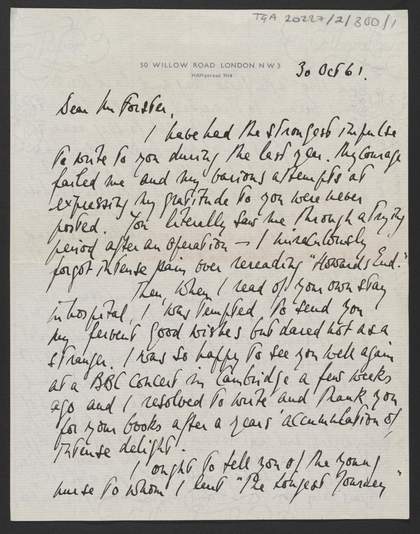 TGA 20227/2/300/1
50 WILLOW ROAD LONDON NW3
30 Oct 61.
Dear Mr Forster,
I have had the strongest impulse
to write to you during the last year. My courage
failed me and my various attempts at
expressing my gratitude to you were never
posted. You literally saw me through a trying
period after an operation — I miraculously
forgot intense pain over rereading "Howards End."
Then, when I read of your own stay
in hospital, I was tempted to send you
my fervent good wishes but dared not as a
stranger. I was so happy to see you well again
at a BBC concert in Cambridge a few weeks
ago and I resolved to write and thank you
for your books after a years' accumulation of
intense delight.
I ought to tell you of the young
nurse to whom I lent "The Longest Journey"